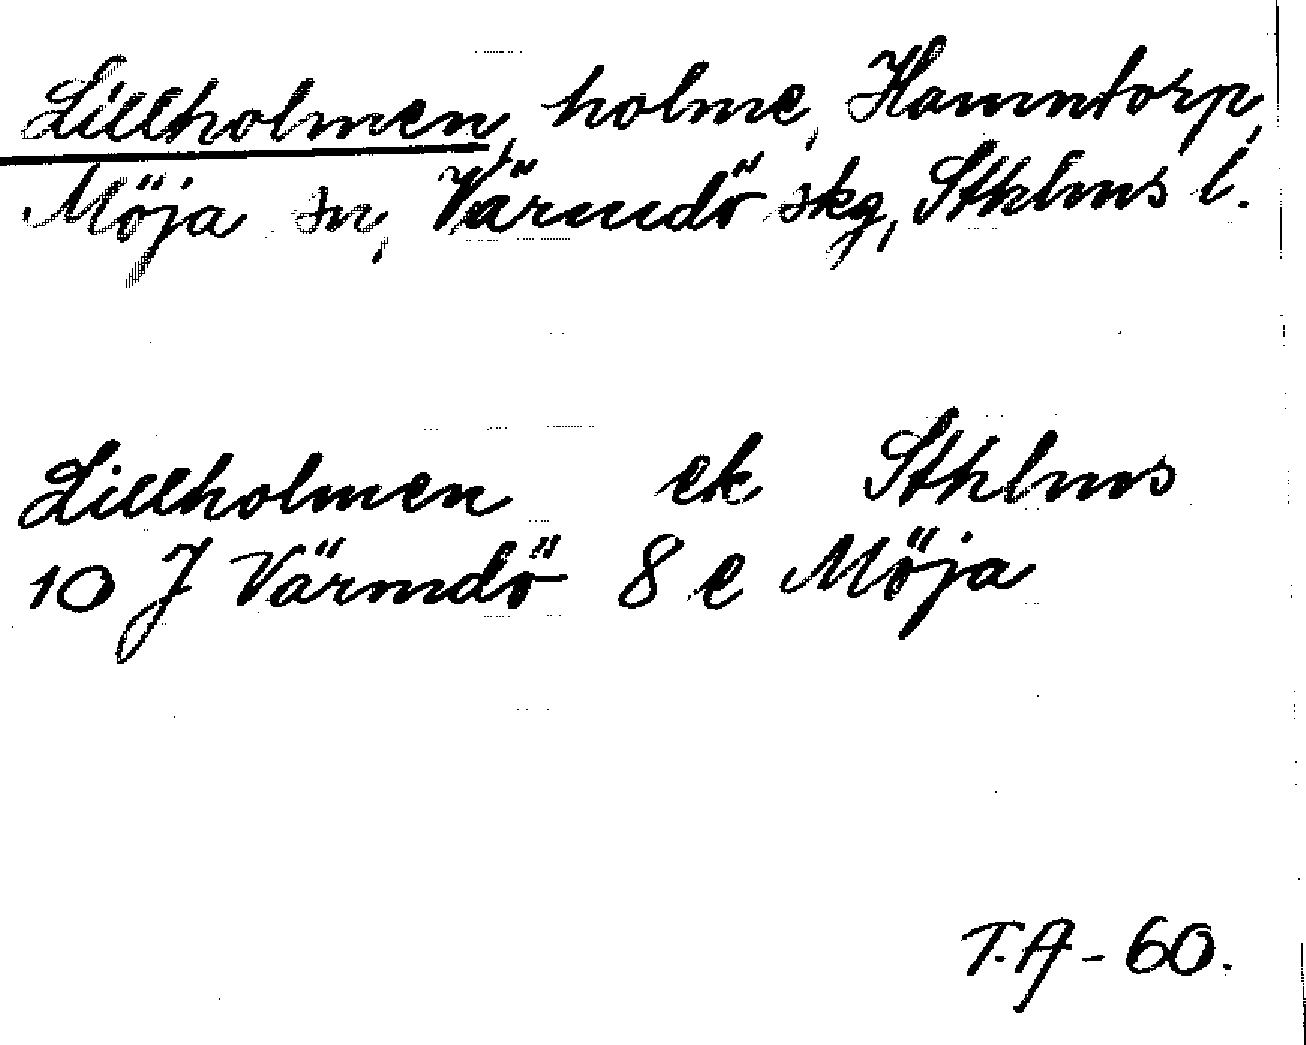 Lillholmen, holme, Hamntorp,
Möja sn, Värmdö skg, Sthlms l.
Lillholmen ek Sthlms
10 J Värmdö 8 e Möja
T.A - 60.